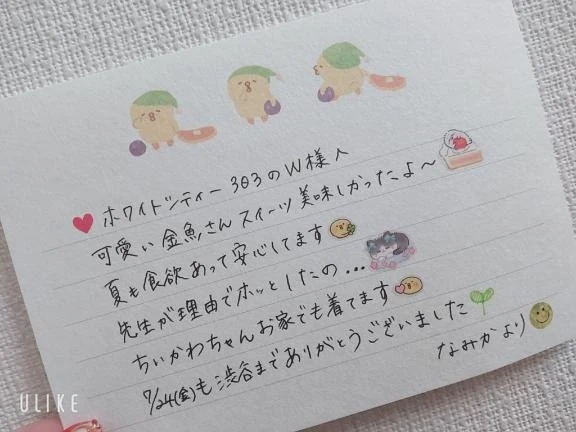 ホワイトシティー303のW様へ
可愛い金魚さんスイーツ美味しかったよ〜
夏も食欲あって安心してます
先生が理由でホッとしたの...
ちいかわちゃんお家でも着てます
7/24(金)も渋谷までありがとうございました
なみかより
ULIKE